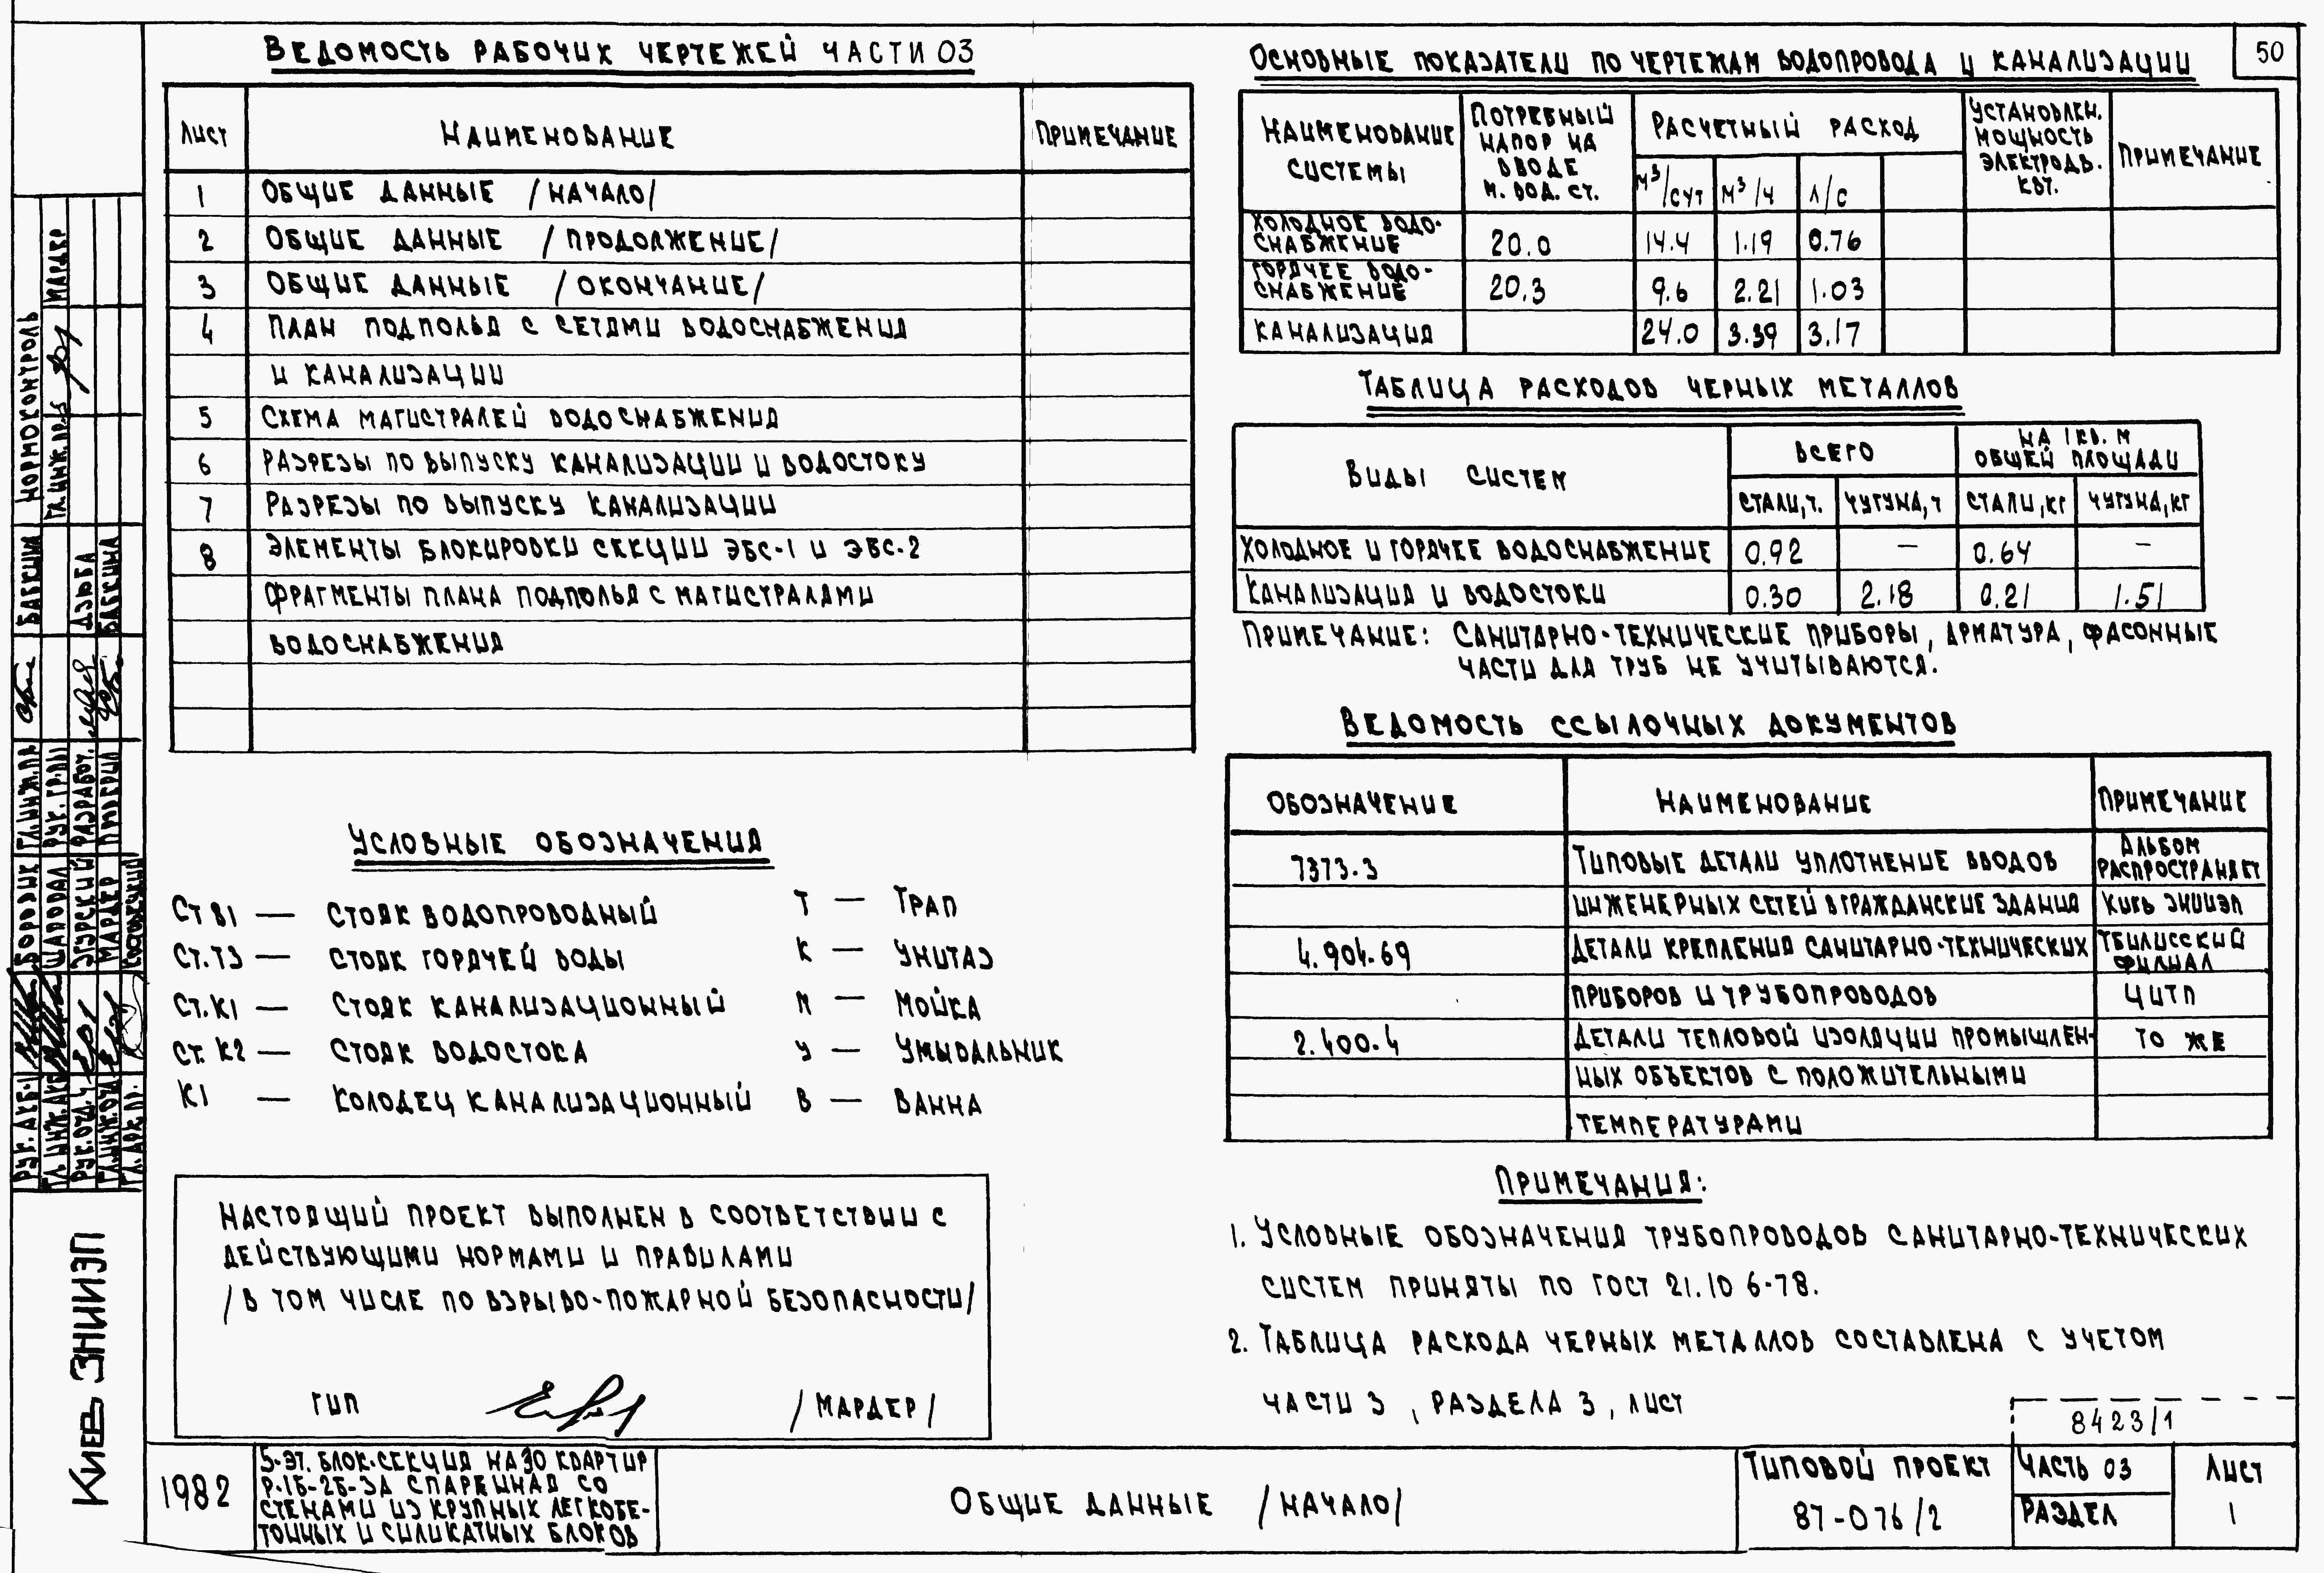 50
Ведомость рабочих чертежей части 03
Лист Наименование Примечание
1 Общие данные /начало/
2 Общие данные /продолжение/
3 Общие данные /окончание/
4 План подполья с сетями водоснабжения
и канализации
5 Схема магистралей водоснабжения
6 Разрезы по выпуску канализации и водостоку
7 Разрезы по выпуску канализации
8 Элементы блокировки секции ЭБС-1 и ЭБС-2
Фрагменты плана подполья с магистралями
водоснабжения
Условные обозначения
Ст В1 — Стояк водопроводный
Ст.Т3 — Стояк горячей воды
Ст.К1 — Стояк канализационный
Ст. К2 — Стояк водостока
К1 — Колодец канализационный
Т — Трап
К — Унитаз
М — Мойка
У — Умывальник
В — Ванна
Настоящий проект выполнен в соответствии с
действующими нормами и правилами
/в том числе по взрыво-пожарной безопасности/
ГИП /Мардер/
Основные показатели по чертежам водопровода и канализации
Наименование системы
Потребный напор на вводе м. вод. ст.
Расчетный расход
м³/сут м³/ч л/с
Установлен. мощность электродв. квт.
Примечание
Холодное водо-
снабжение 20.0 14.4 1.19 0.76
Горячее водо-
снабжение 20.3 9.6 2.21 1.03
Канализация 24.0 3.39 3.17
Таблица расходов черных металлов
Виды систем
Всего
На 1 кв. м общей площади
Стали, т. Чугуна, т Стали, кг Чугуна, кг
Холодное и горячее водоснабжение 0.92 — 0.64 —
Канализация и водостоки 0.30 2.18 0.21 1.51
Примечание: Санитарно-технические приборы, арматура, фасонные
части для труб не учитываются.
Ведомость ссылочных документов
Обозначение Наименование Примечание
7373-3 Типовые детали уплотнение вводов Альбом распространяет
инженерных сетей в гражданские здания КиевЗНИИЭП
4.904-69 Детали крепления санитарно-технических Тбилисский филиал
приборов и трубопроводов ЦИТП
2.400-4 Детали тепловой изоляции промышлен- То же
ных объектов с положительными
температурами
Примечания:
1. Условные обозначения трубопроводов санитарно-технических
систем приняты по ГОСТ 21.106-78.
2. Таблица расхода черных металлов составлена с учетом
части 3, раздела 3, лист
8423/1
1982
5-эт. блок-секция на 30 квартир
Р-1Б-2Б-3А спаренная со
стенами из крупных легкобе-
тонных и силикатных блоков
Общие данные /начало/
Типовой проект
87-076/2
Часть 03
Раздел
Лист
1
Нормоконтроль
Гл.инж.пр-в Мардер
Гл.инж.пр. Бабкина
Рук. гр.
Разработ. Дзюба
Проверил Бабкина
Рук. АКБ-1 Бородик
Гл.инж.АКБ Шаповал
Рук.отд. 4 Згурский
Гл.инж.отд. Мардер
Гл. арх. пр.
Киев ЗНИИЭП